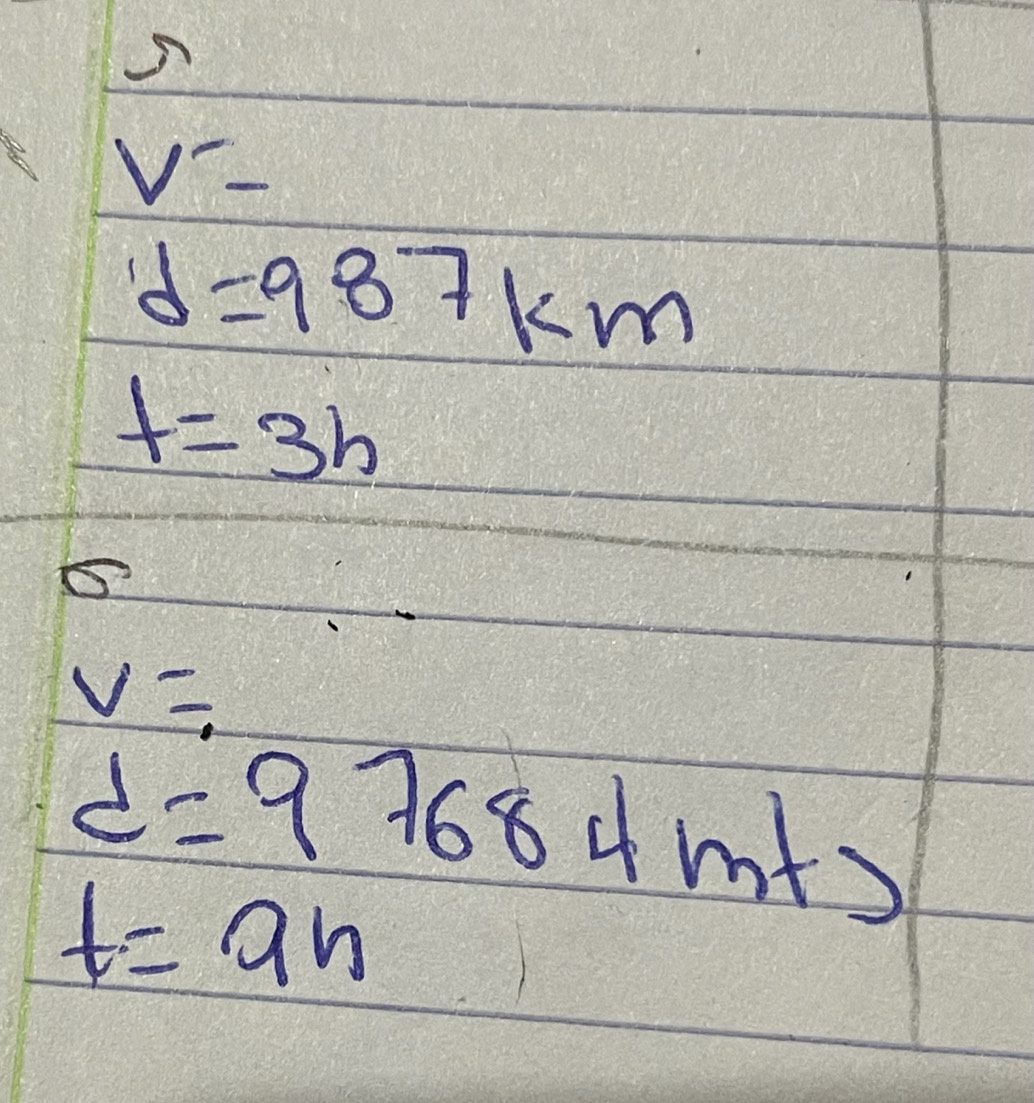 5
V=
d=987km
t=3h
6
v=
d=97684mts
t=9h